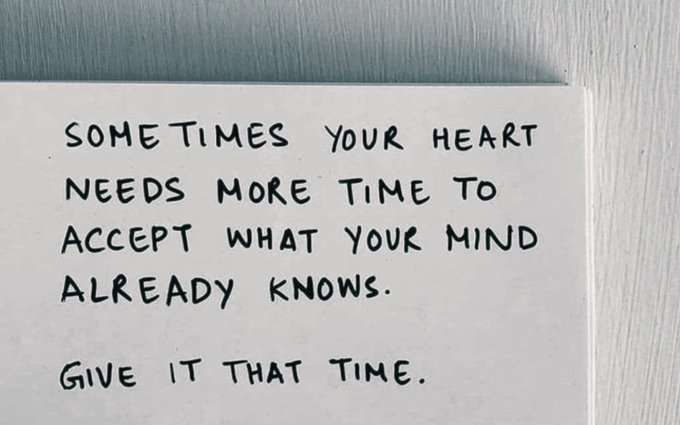 SOMETIMES YOUR HEART
NEEDS MORE TIME TO
ACCEPT WHAT YOUR MIND
ALREADY KNOWS.
GIVE IT THAT TIME.